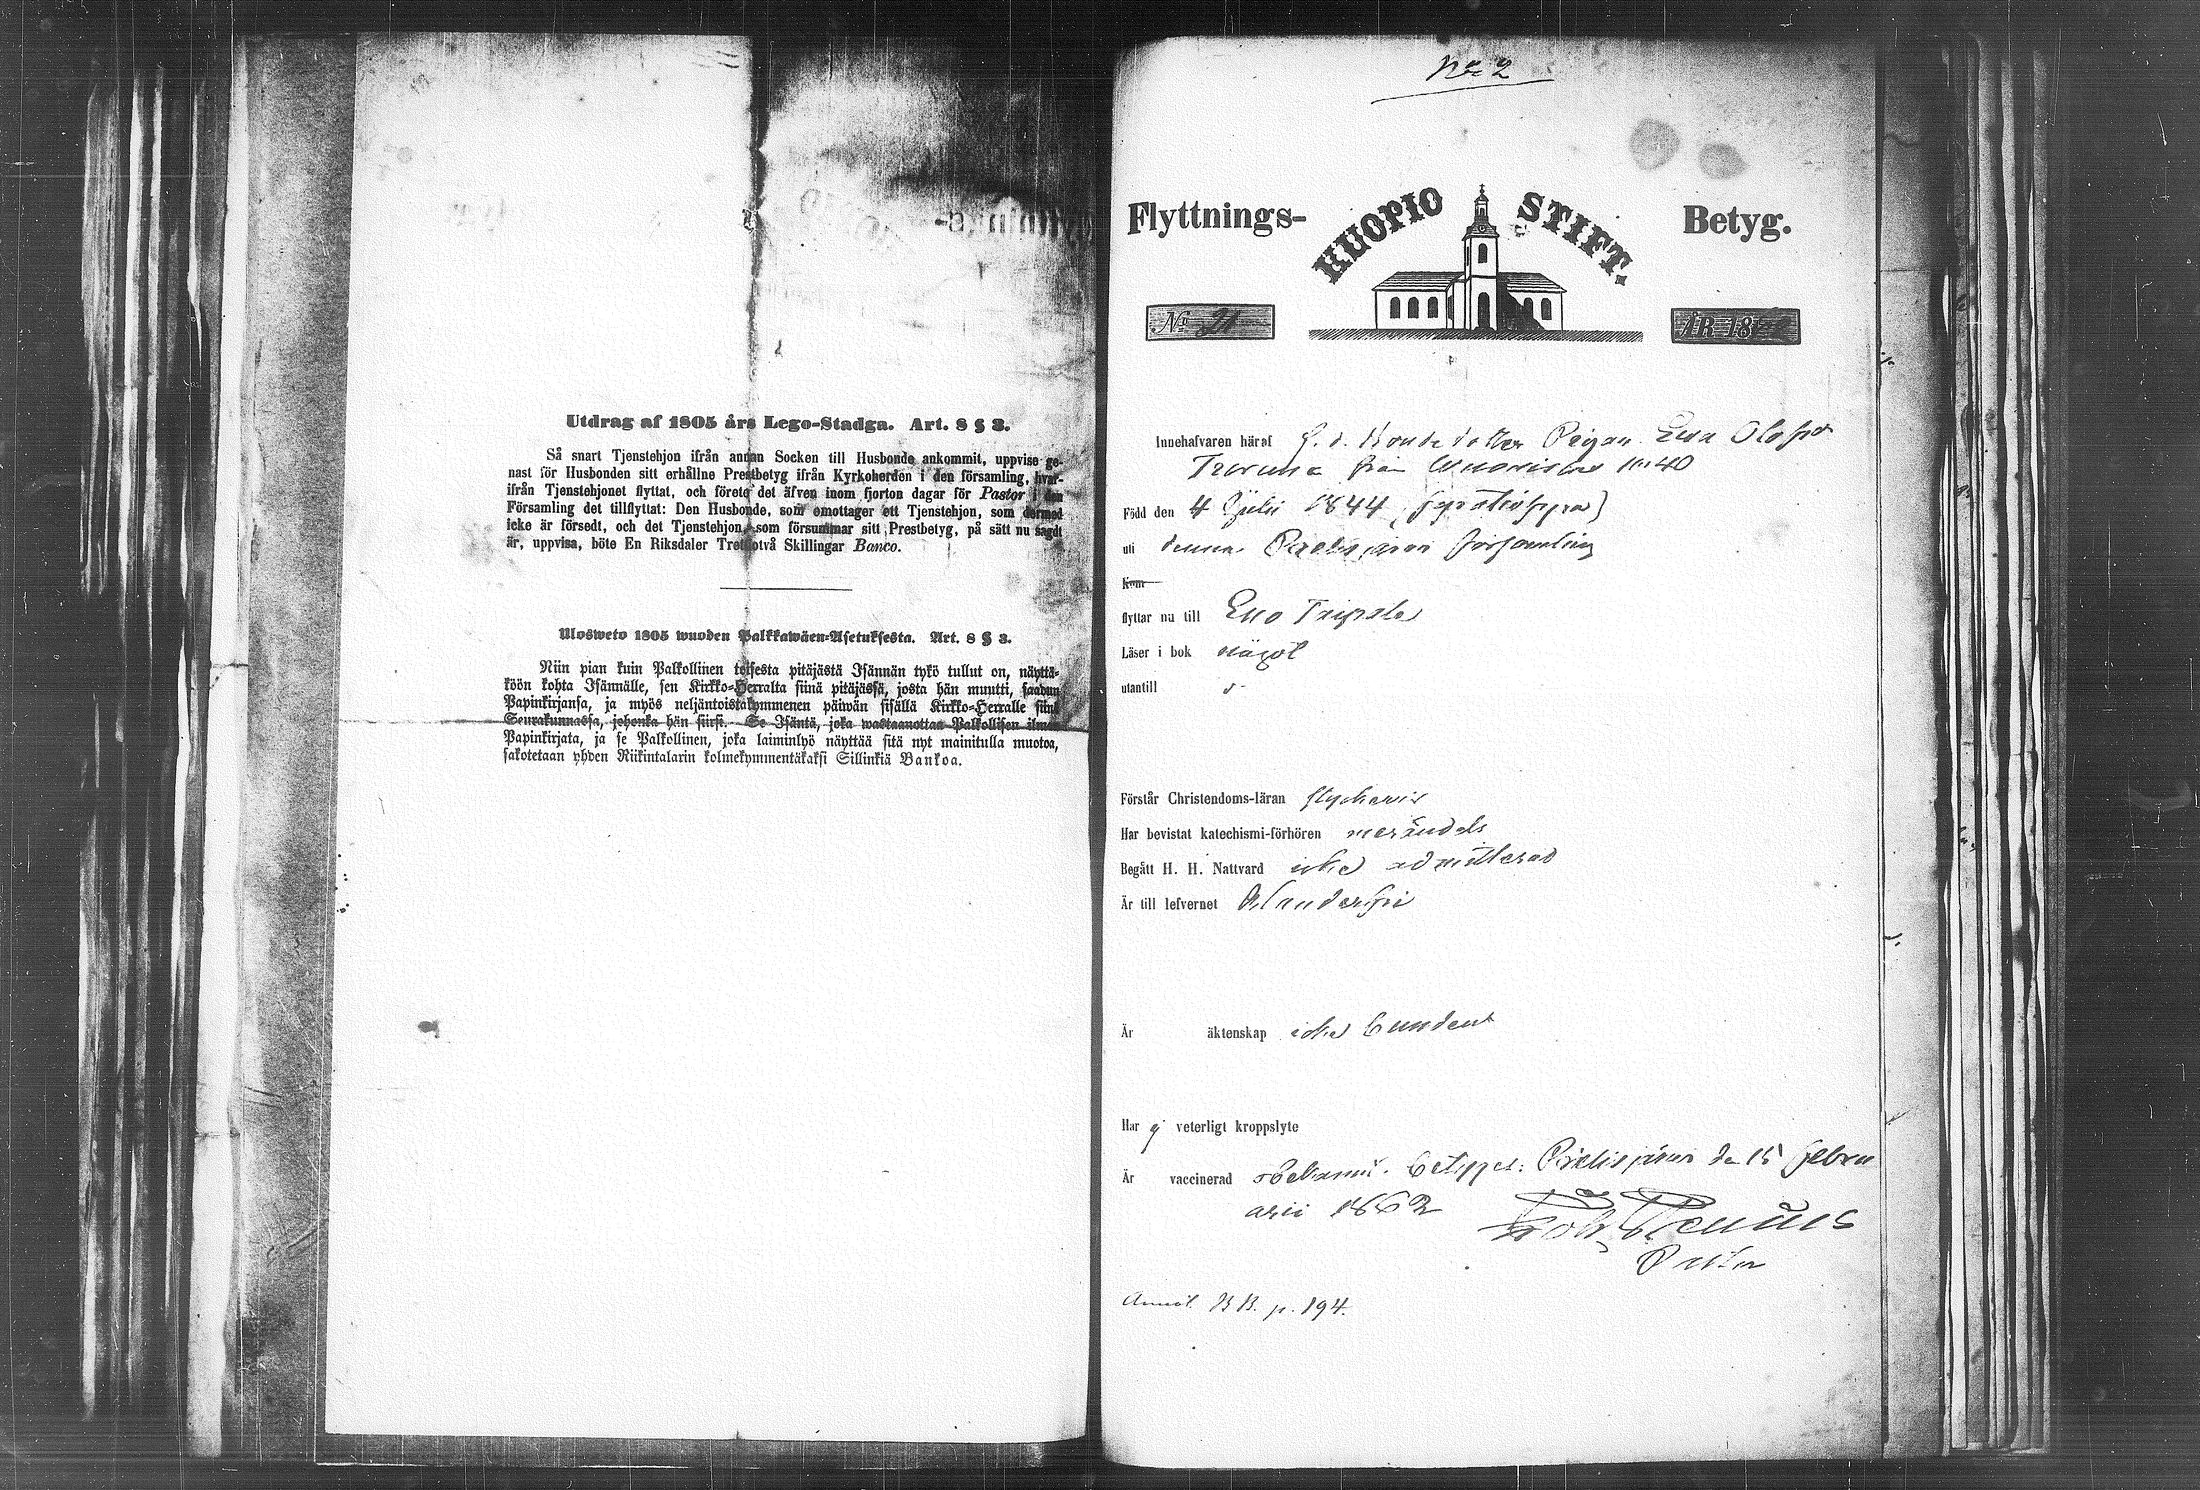 Utdrag af 1805 års Lego-Stadga. Art. 8 § 3.
Så snart Tjenstehjon ifrån annan Socken till Husbonde ankommit, uppvise ge-
nast för Husbonden sitt erhållne Prestbetyg ifrån Kyrkoherden i den församling, hvar-
ifrån Tjenstehjonet flyttat, och förete det äfven inom fjorton dagar för Pastor i den
Församling det tillflyttat: Den Husbonde, som emottager ett Tjenstehjon, som dermed
icke är försedt, och det Tjenstehjon, som försummar sitt Prestbetyg, på sätt nu sagdt
är, uppvisa, böte En Riksdaler Trettiotvå Skillingar Banco.
Ulosweto 1805 wuoden Palkkawäen-Asetuksesta. Art. 8 § 3.
Niin pian kuin Palkollinen toisesta pitäjästä Isännän tykö tullut on, näyttä-
köön kohta Isännälle, sen Kirkko-Herralta siinä pitäjässä, josta hän muutti, saadun
Papinkirjansa, ja myös neljäntoistakymmenen päiwän sisällä Kirkko-Herralle siinä
Seurakunnassa, johonka hän siirsi. Se Isäntä, joka wastaanottaa Palkollisen ilman
Papinkirjata, ja se Palkollinen, joka laiminlyö näyttää sitä nyt mainitulla muotoa,
sakotetaan yhden Riikintalarin kolmekymmentäkaksi Sillinkiä Bankoa.
No 2
Flyttnings- KUOPIO STIFT. Betyg.
No 21 ÅR 18
Innehafvaren häraf f. d. Bondedotter Pigan Eva Olofsdr
från No 40
Född den 4 Julii 1844
uti denna Pielisjärvi församling
Kom
flyttar nu till Eno
Läser i bok något
utantill
Förstår Christendoms-läran styckevis
Har bevistat katechismi-förhören merändels
Begått H. H. Nattvard icke admitterad
Är till lefvernet klanderfri
Är äktenskap icke bundent
Har ej veterligt kroppslyte
Är vaccinerad obekant. betygas: Pielisjärvi den 15 Febru
arii 1862
Joh.
Pastor
Annot. B B. p. 194.